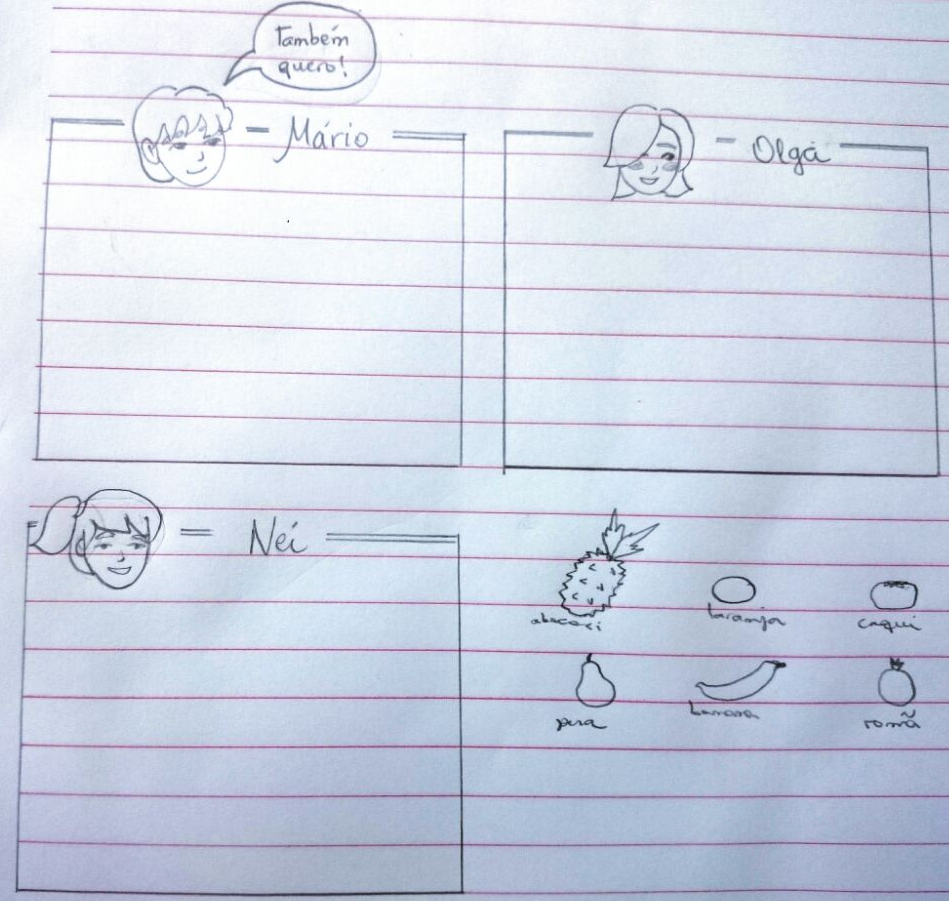 Também
quero!
Mário
Olga
Nei
abacaxi
laranja
caqui
pera
banana
romã